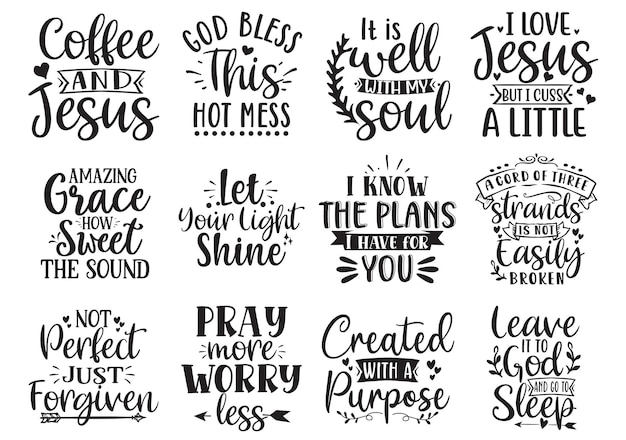 Coffee
AND
Jesus
GOD BLESS
This
HOT MESS
It is
well
WITH MY
soul
I LOVE
Jesus
BUT I CUSS
A LITTLE
AMAZING
Grace
HOW
Sweet
THE SOUND
Let
Your Light
Shine
I KNOW
THE PLANS
I HAVE FOR
YOU
A CORD OF THREE
strands
IS NOT
Easily
BROKEN
NOT
Perfect
JUST
Forgiven
PRAY
more
WORRY
less
Created
WITH A
Purpose
Leave
IT TO
God
AND GO TO
Sleep